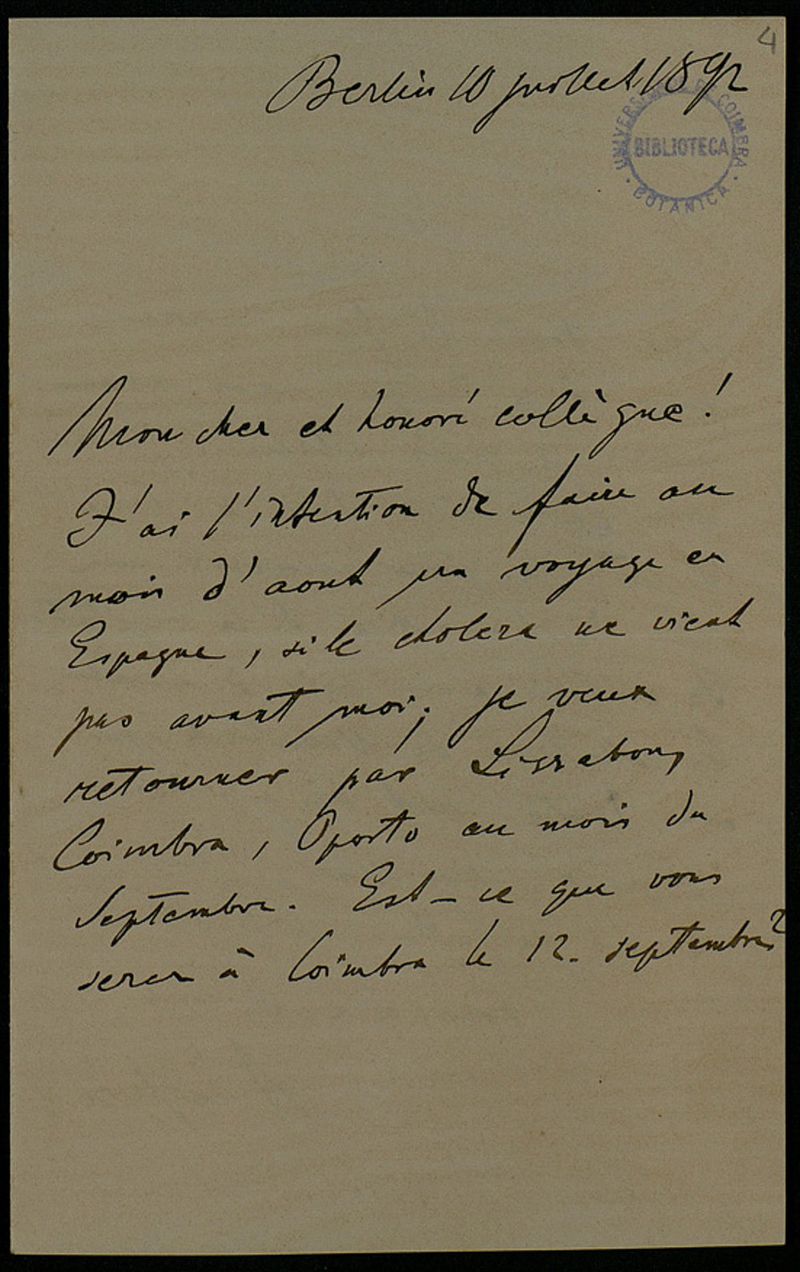 4
Berlin 10 juillet 1892
UNIVERSIDADE DE COIMBRA
BIBLIOTECA
BOTANICA
Mon cher et honoré collègue!
J'ai l'intention de faire au
mois d'aout un voyage en
Espagne, si le cholera ne vient
pas avant moi; je veux
retourner par Lissabon,
Coimbra, Oporto au mois du
Septembre. Est-ce que vous
serez à Coimbra le 12. septembre?